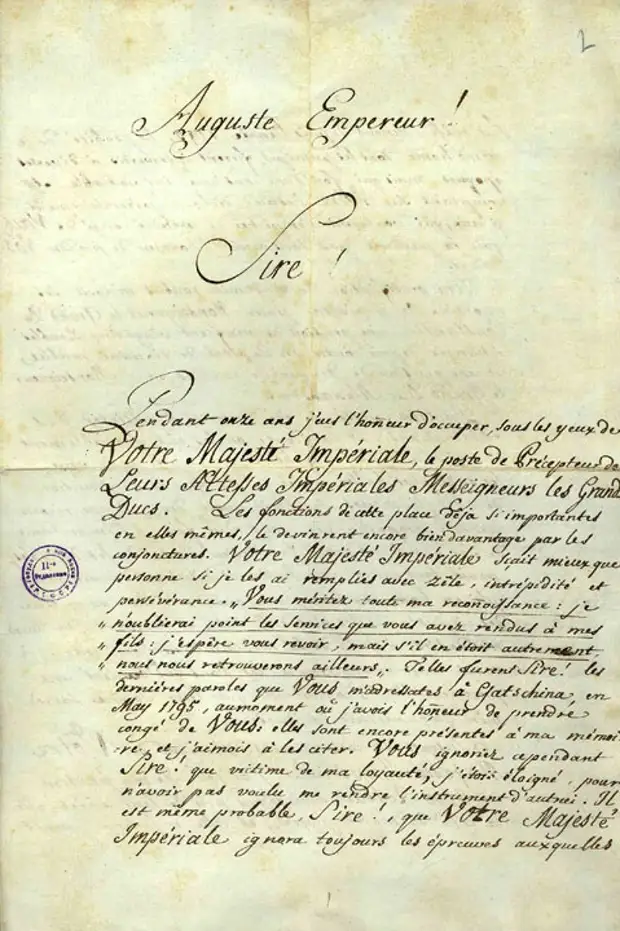 2
Auguste Empereur!
Sire!
Pendant onze ans j'eus l'hoñeur d'occuper, sous les yeux de
Votre Majesté Impériale, le poste de Précepteur de
Leurs Altesses Impériales Messeigneurs les Grand
Ducs. Les fonctions de cette place déja si importantes
en elles mêmes, le devinrent encore bien davantage par les
conjonctures. Votre Majesté Impériale Scait mieux que
personne si je les ai remplies avec zèle, intrépidité et
persévérance. „Vous méritez toute ma reconoissance: je
„n'oublierai point les services que vous avez rendus à mes
„fils: j'espère vous revoir, mais s'il en étoit autrement,
„nous nous retrouverons ailleurs„. Telles furent Sire! les
dernières paroles que Vous m'adressates à Gatschina, en
May 1795, aumoment où j'avois l'hoñeur de prendre
congé de Vous: elles sont encore présentes à ma mémoi
re, et j'aimois à les citer. Vous ignoriez cependant
Sire! que victime de ma loyauté, j'étois éloigné, pour
n'avoir pas voulu me rendre l'instrument d'autrui. Il
est même probable, Sire!, que Votre Majesté
Impériale ignora toujours les épreuves auxquelles